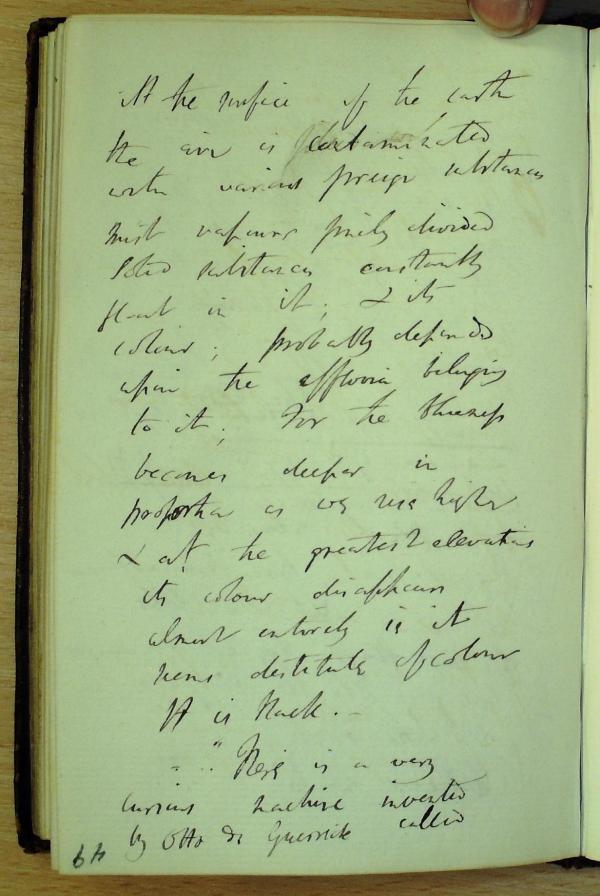 At the surface of the earth
the air is contaminated
with various foreign substances
mist vapours finely divided
solid substances constantly
float in it; & its
colour; probably depends
upon the effluvia belonging
to it; For the blueness
becomes deeper in
proportion as we rise higher
& at the greatest elevations
its colour disappears
almost entirely is it
seems destitute of colour
It is black. –
" There is a very
curious machine invented
by Otto de Guerricke called
64